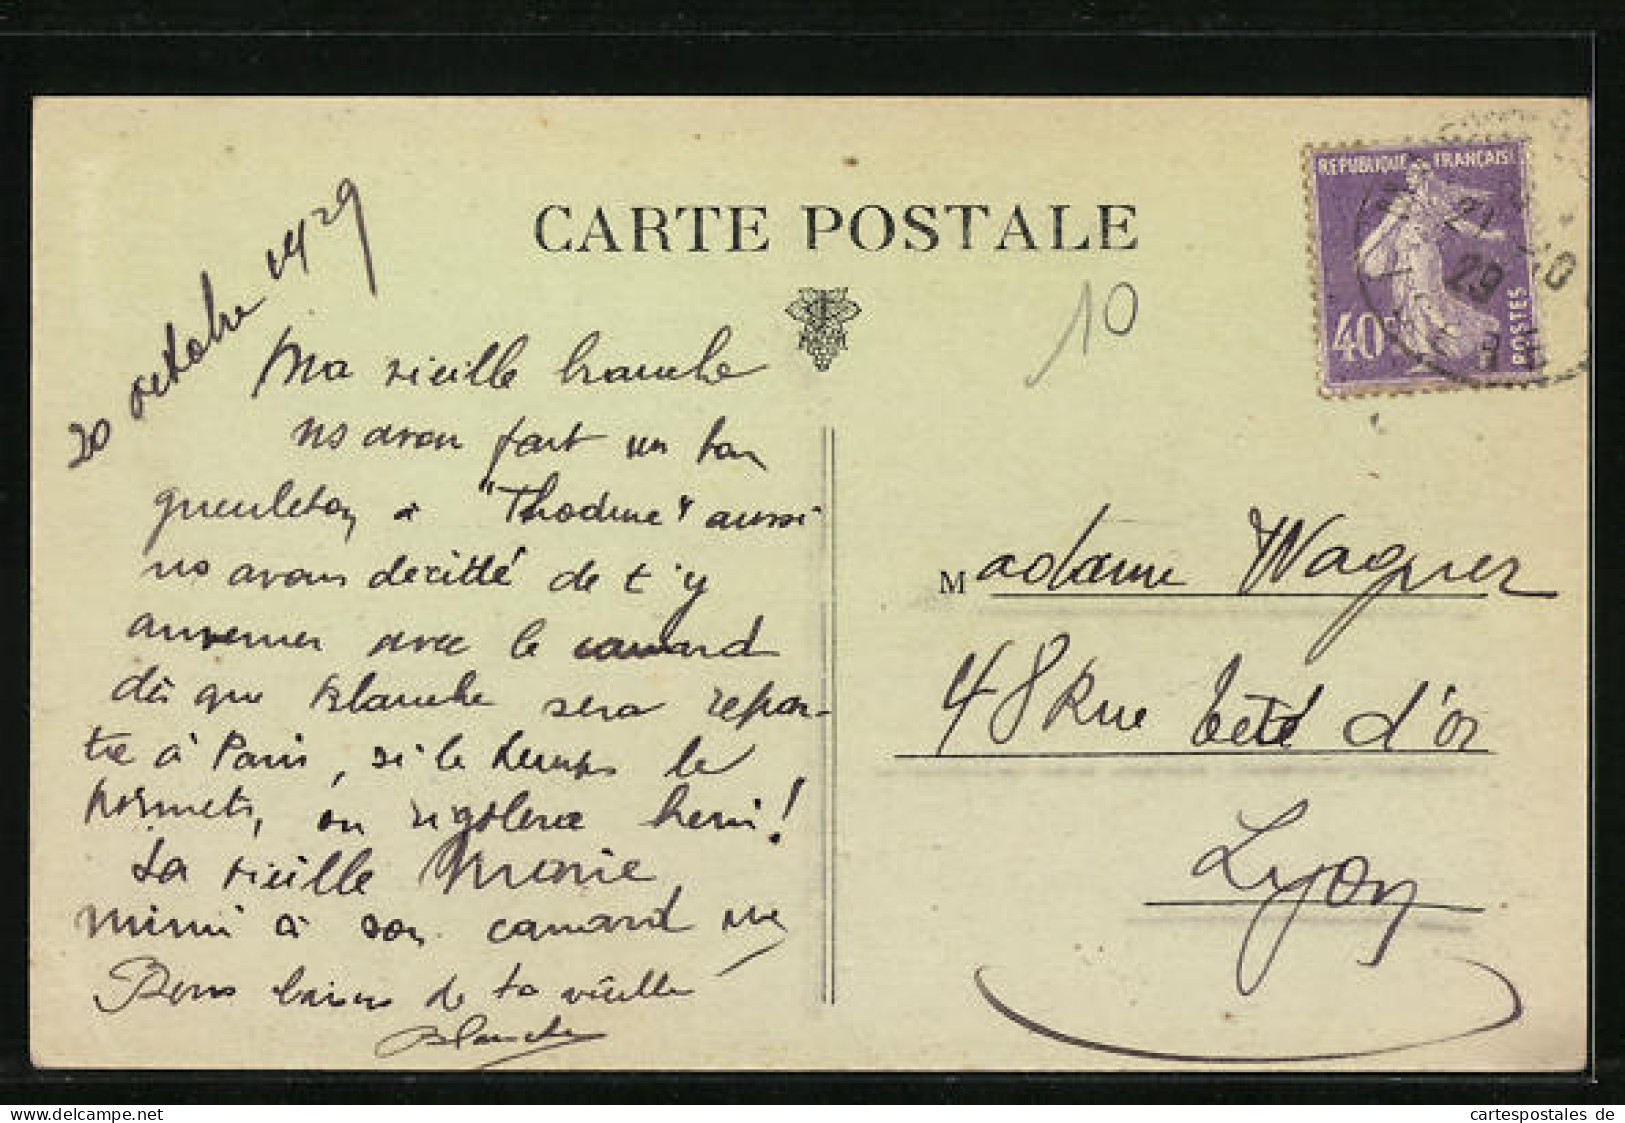 CARTE POSTALE
REPUBLIQUE FRANÇAISE
POSTES
40c
21 -10
29
10
20 octobre 1929
Ma vieille branche
ns avon fait un bon
gueuleton a "Thodure" aussi
ns avons decitté de t'y
ammener avec le canard
dès que Blanche sera repar-
tie à Paris, si le temps le
permets, on rigolera hein!
ta vieille
mimi à son canard
Bons baisers de ta vieille
Blanche
Madame Wagner
48 Rue tête d'or
Lyon
cartespostales de